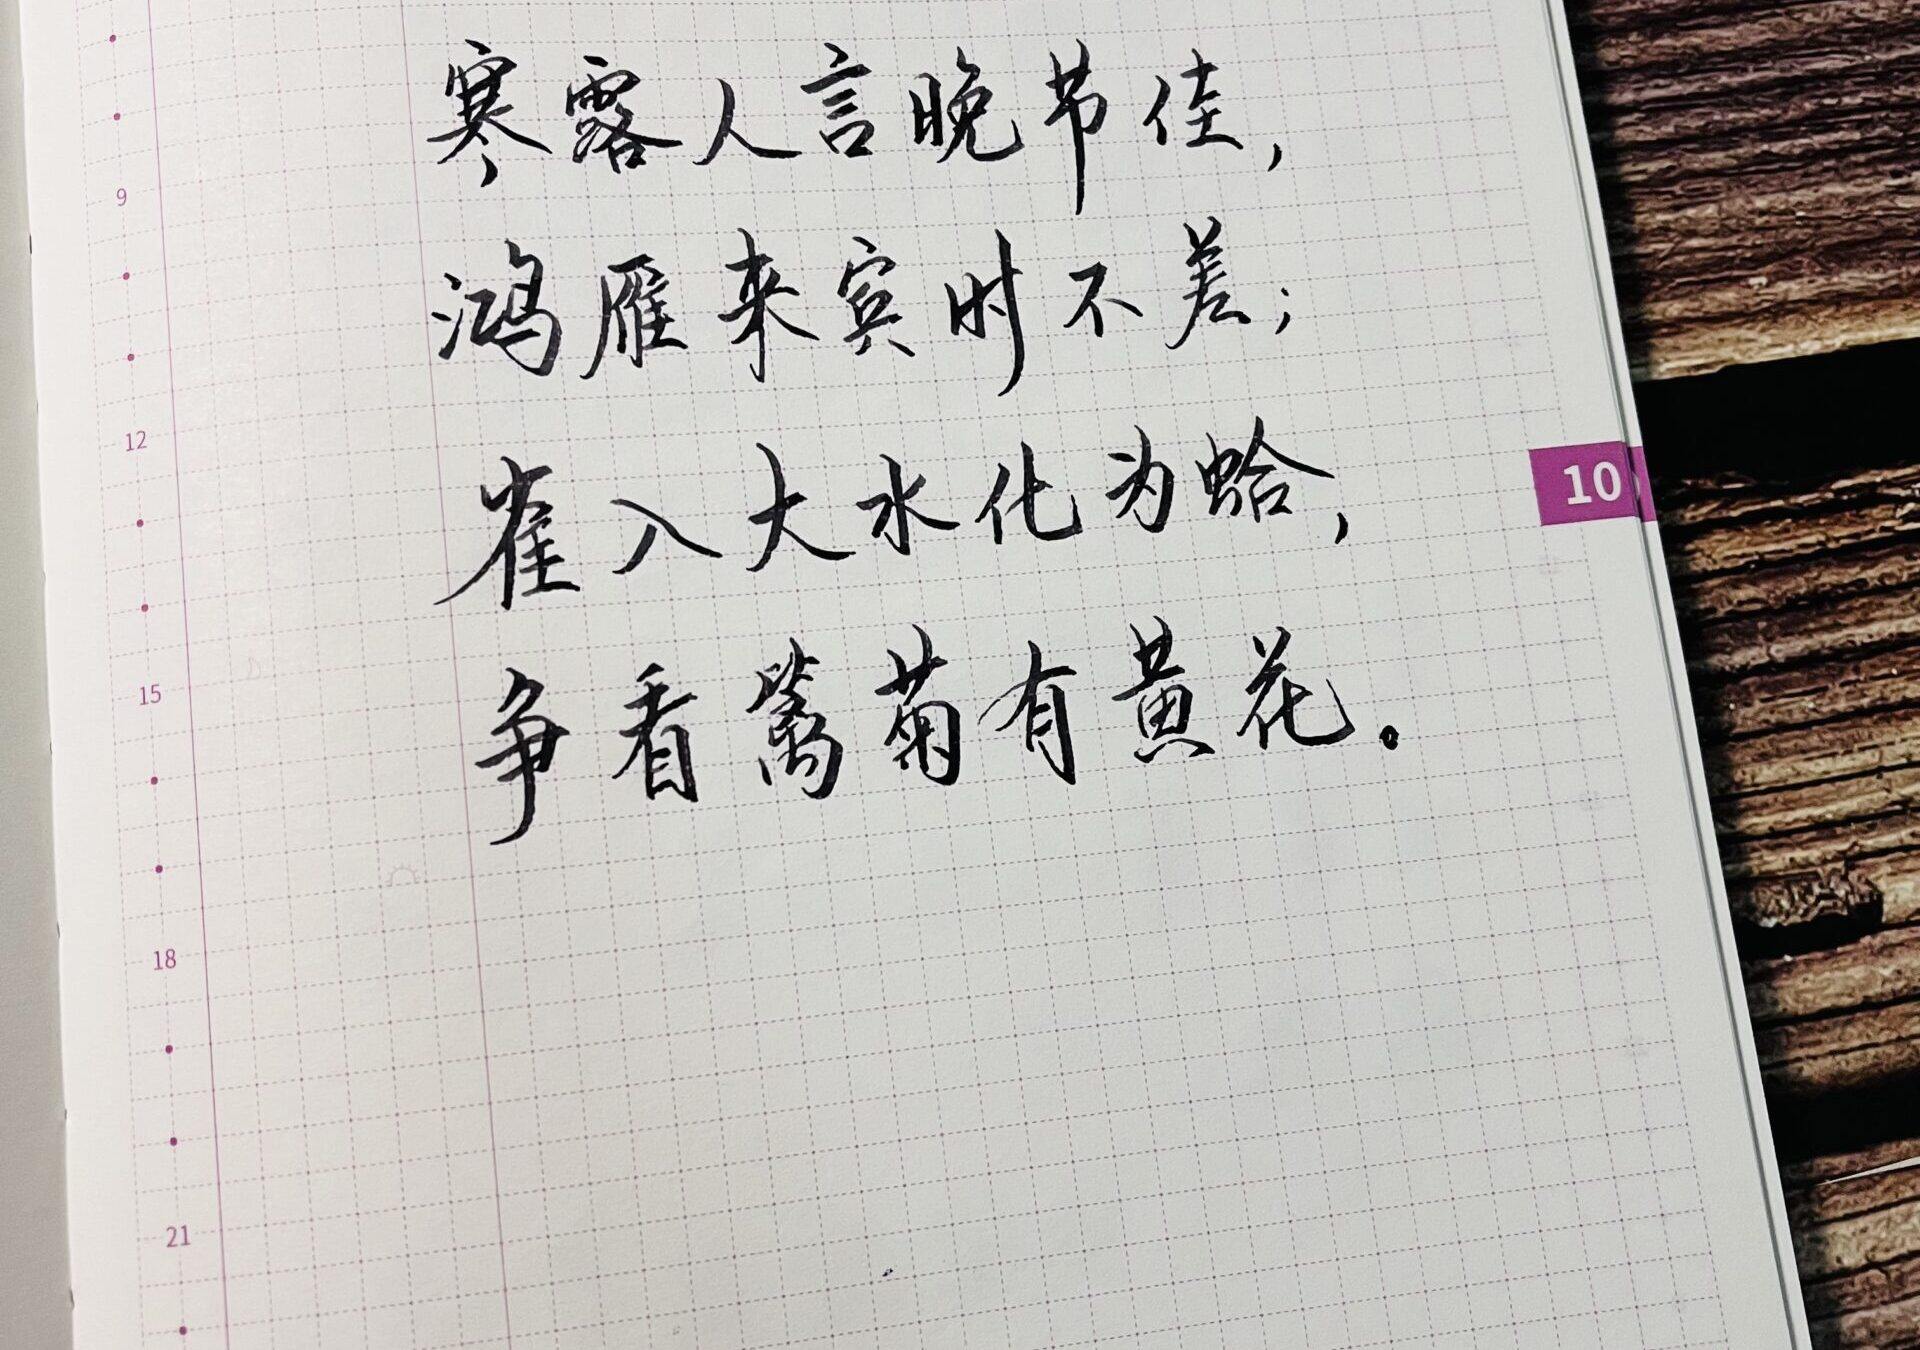 寒露人言晚节佳，
鸿雁来宾时不差；
雀入大水化为蛤，
争看篱菊有黄花。
9
12
15
18
21
10